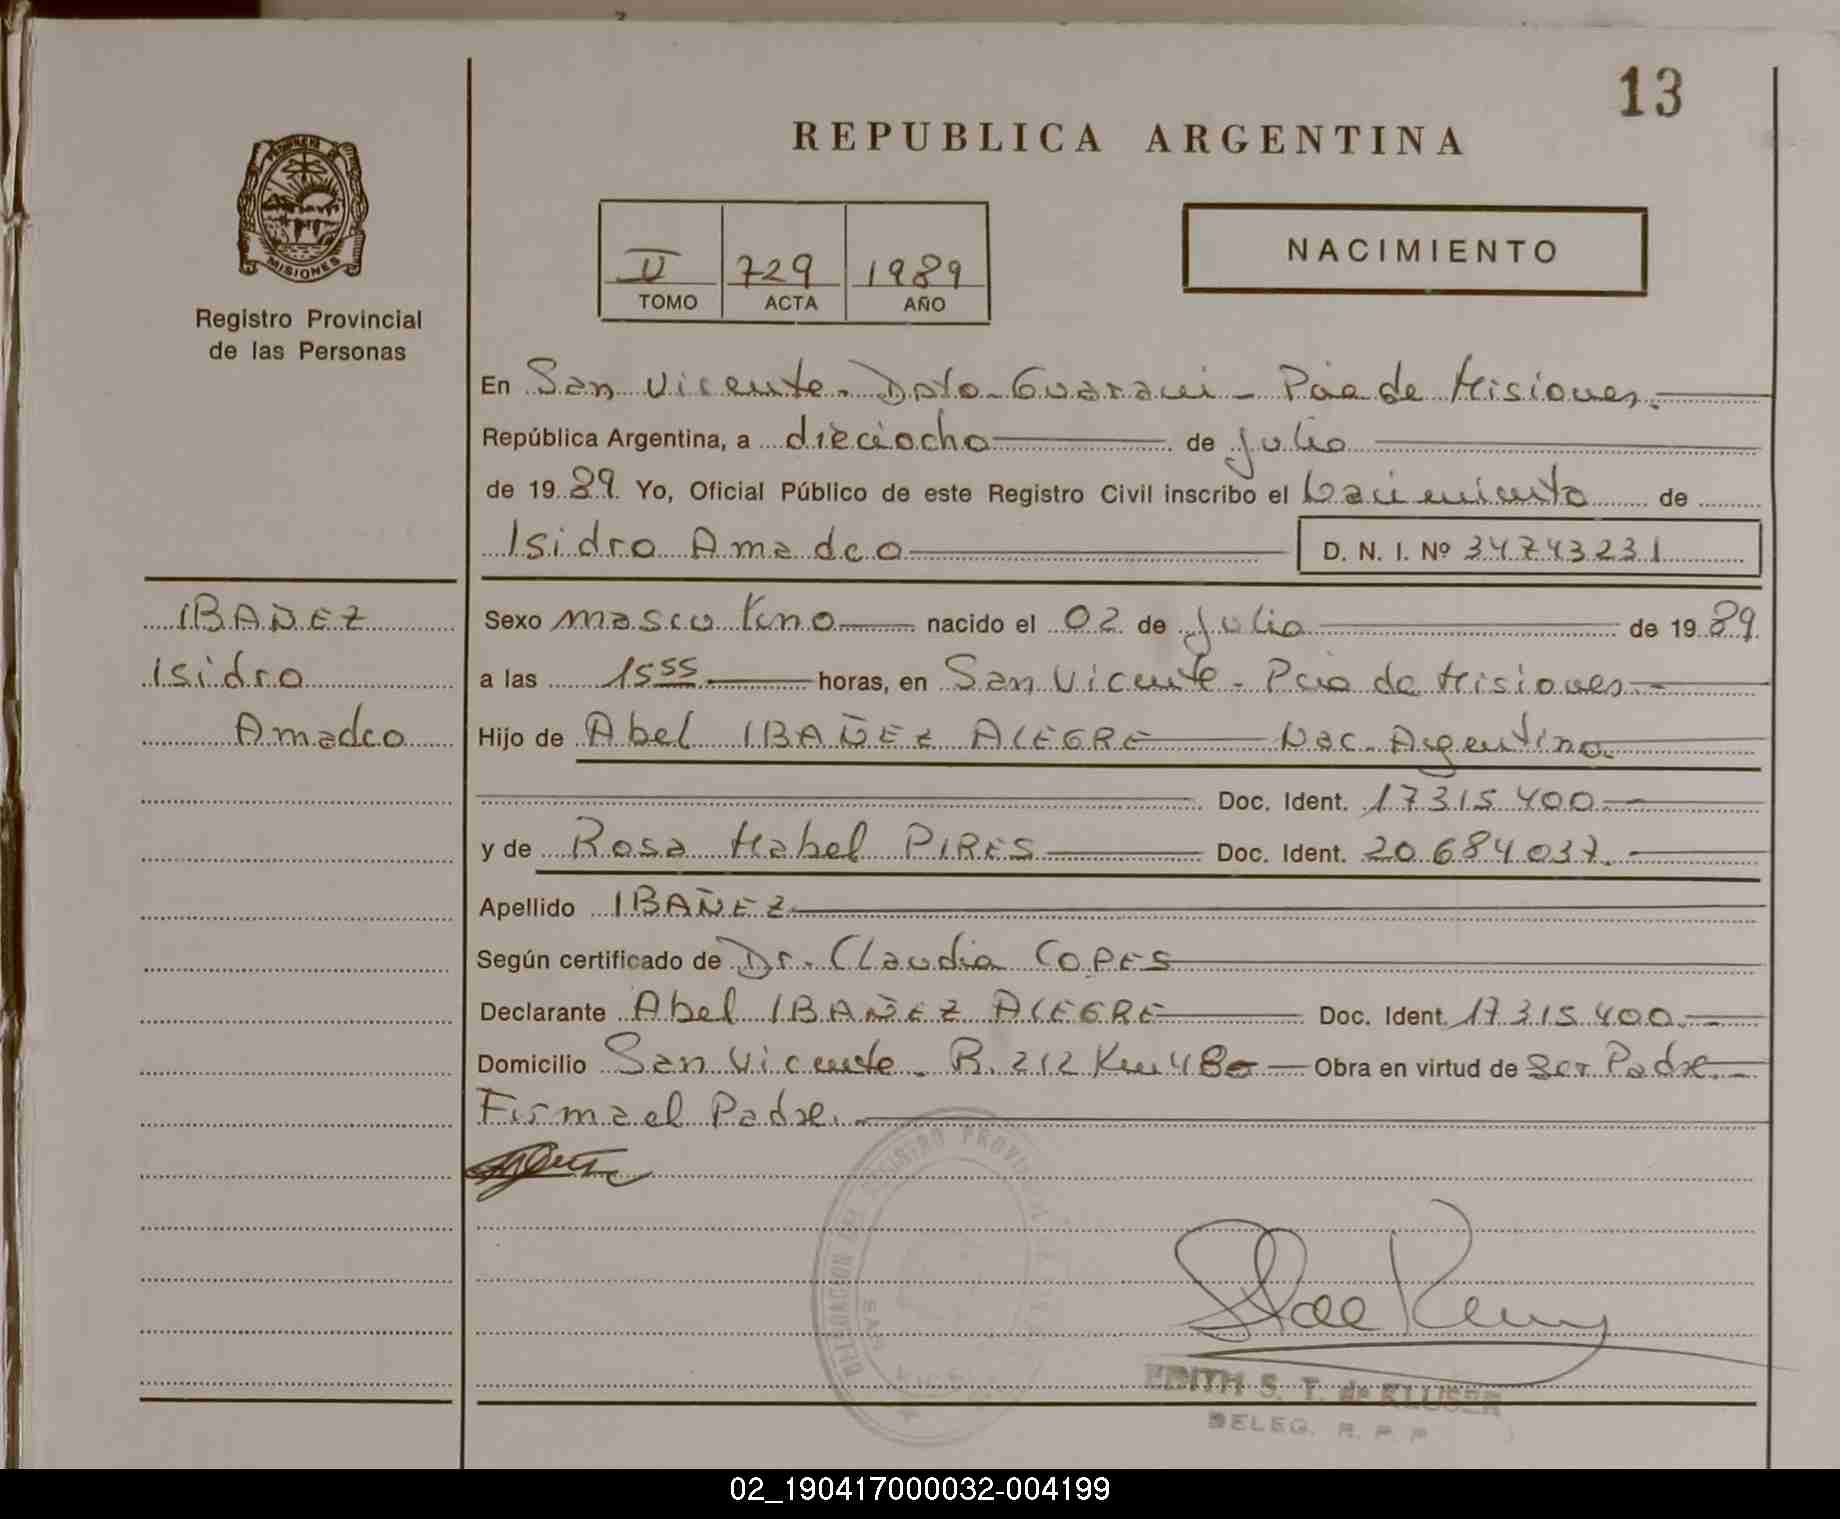 13
REPUBLICA ARGENTINA
MISIONES
Registro Provincial
de las Personas
II 729 1989
TOMO ACTA AÑO
NACIMIENTO
En San Vicente. Dpto. Guarani - Pcia de Misiones.
República Argentina, a dieciocho de Julio
de 1989. Yo, Oficial Público de este Registro Civil inscribo el Nacimiento de
Isidro Amadeo D. N. I. Nº 34743231
IBAÑEZ
Isidro
Amadeo
Sexo masculino nacido el 02 de Julio de 1989.
a las 15 55 horas, en San Vicente - Pcia de Misiones
Hijo de Abel IBAÑEZ ALEGRE Nac. Argentino.
Doc. Ident. 17315400
y de Rosa Mabel PIRES Doc. Ident. 20684037.
Apellido IBAÑEZ
Según certificado de Dr. Claudia COPES
Declarante Abel IBAÑEZ ALEGRE Doc. Ident. 17315400.
Domicilio San Vicente. R. 212 Km 480 Obra en virtud de Ser Padre.
Firma el Padre.
DELEGACION DEL REGISTRO
EDITH S. T. de KLUSER
DELEG. R. P. P
02_190417000032-004199